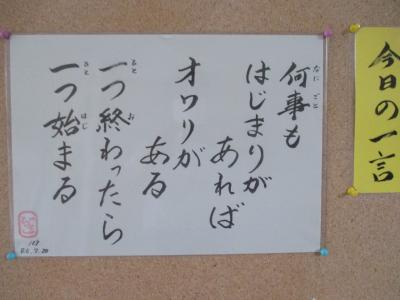 今日の一言
何事も
なにごと
はじまりが
あれば
オワリが
ある
一つ終わったら
ひと お
一つ始まる
ひと はじ